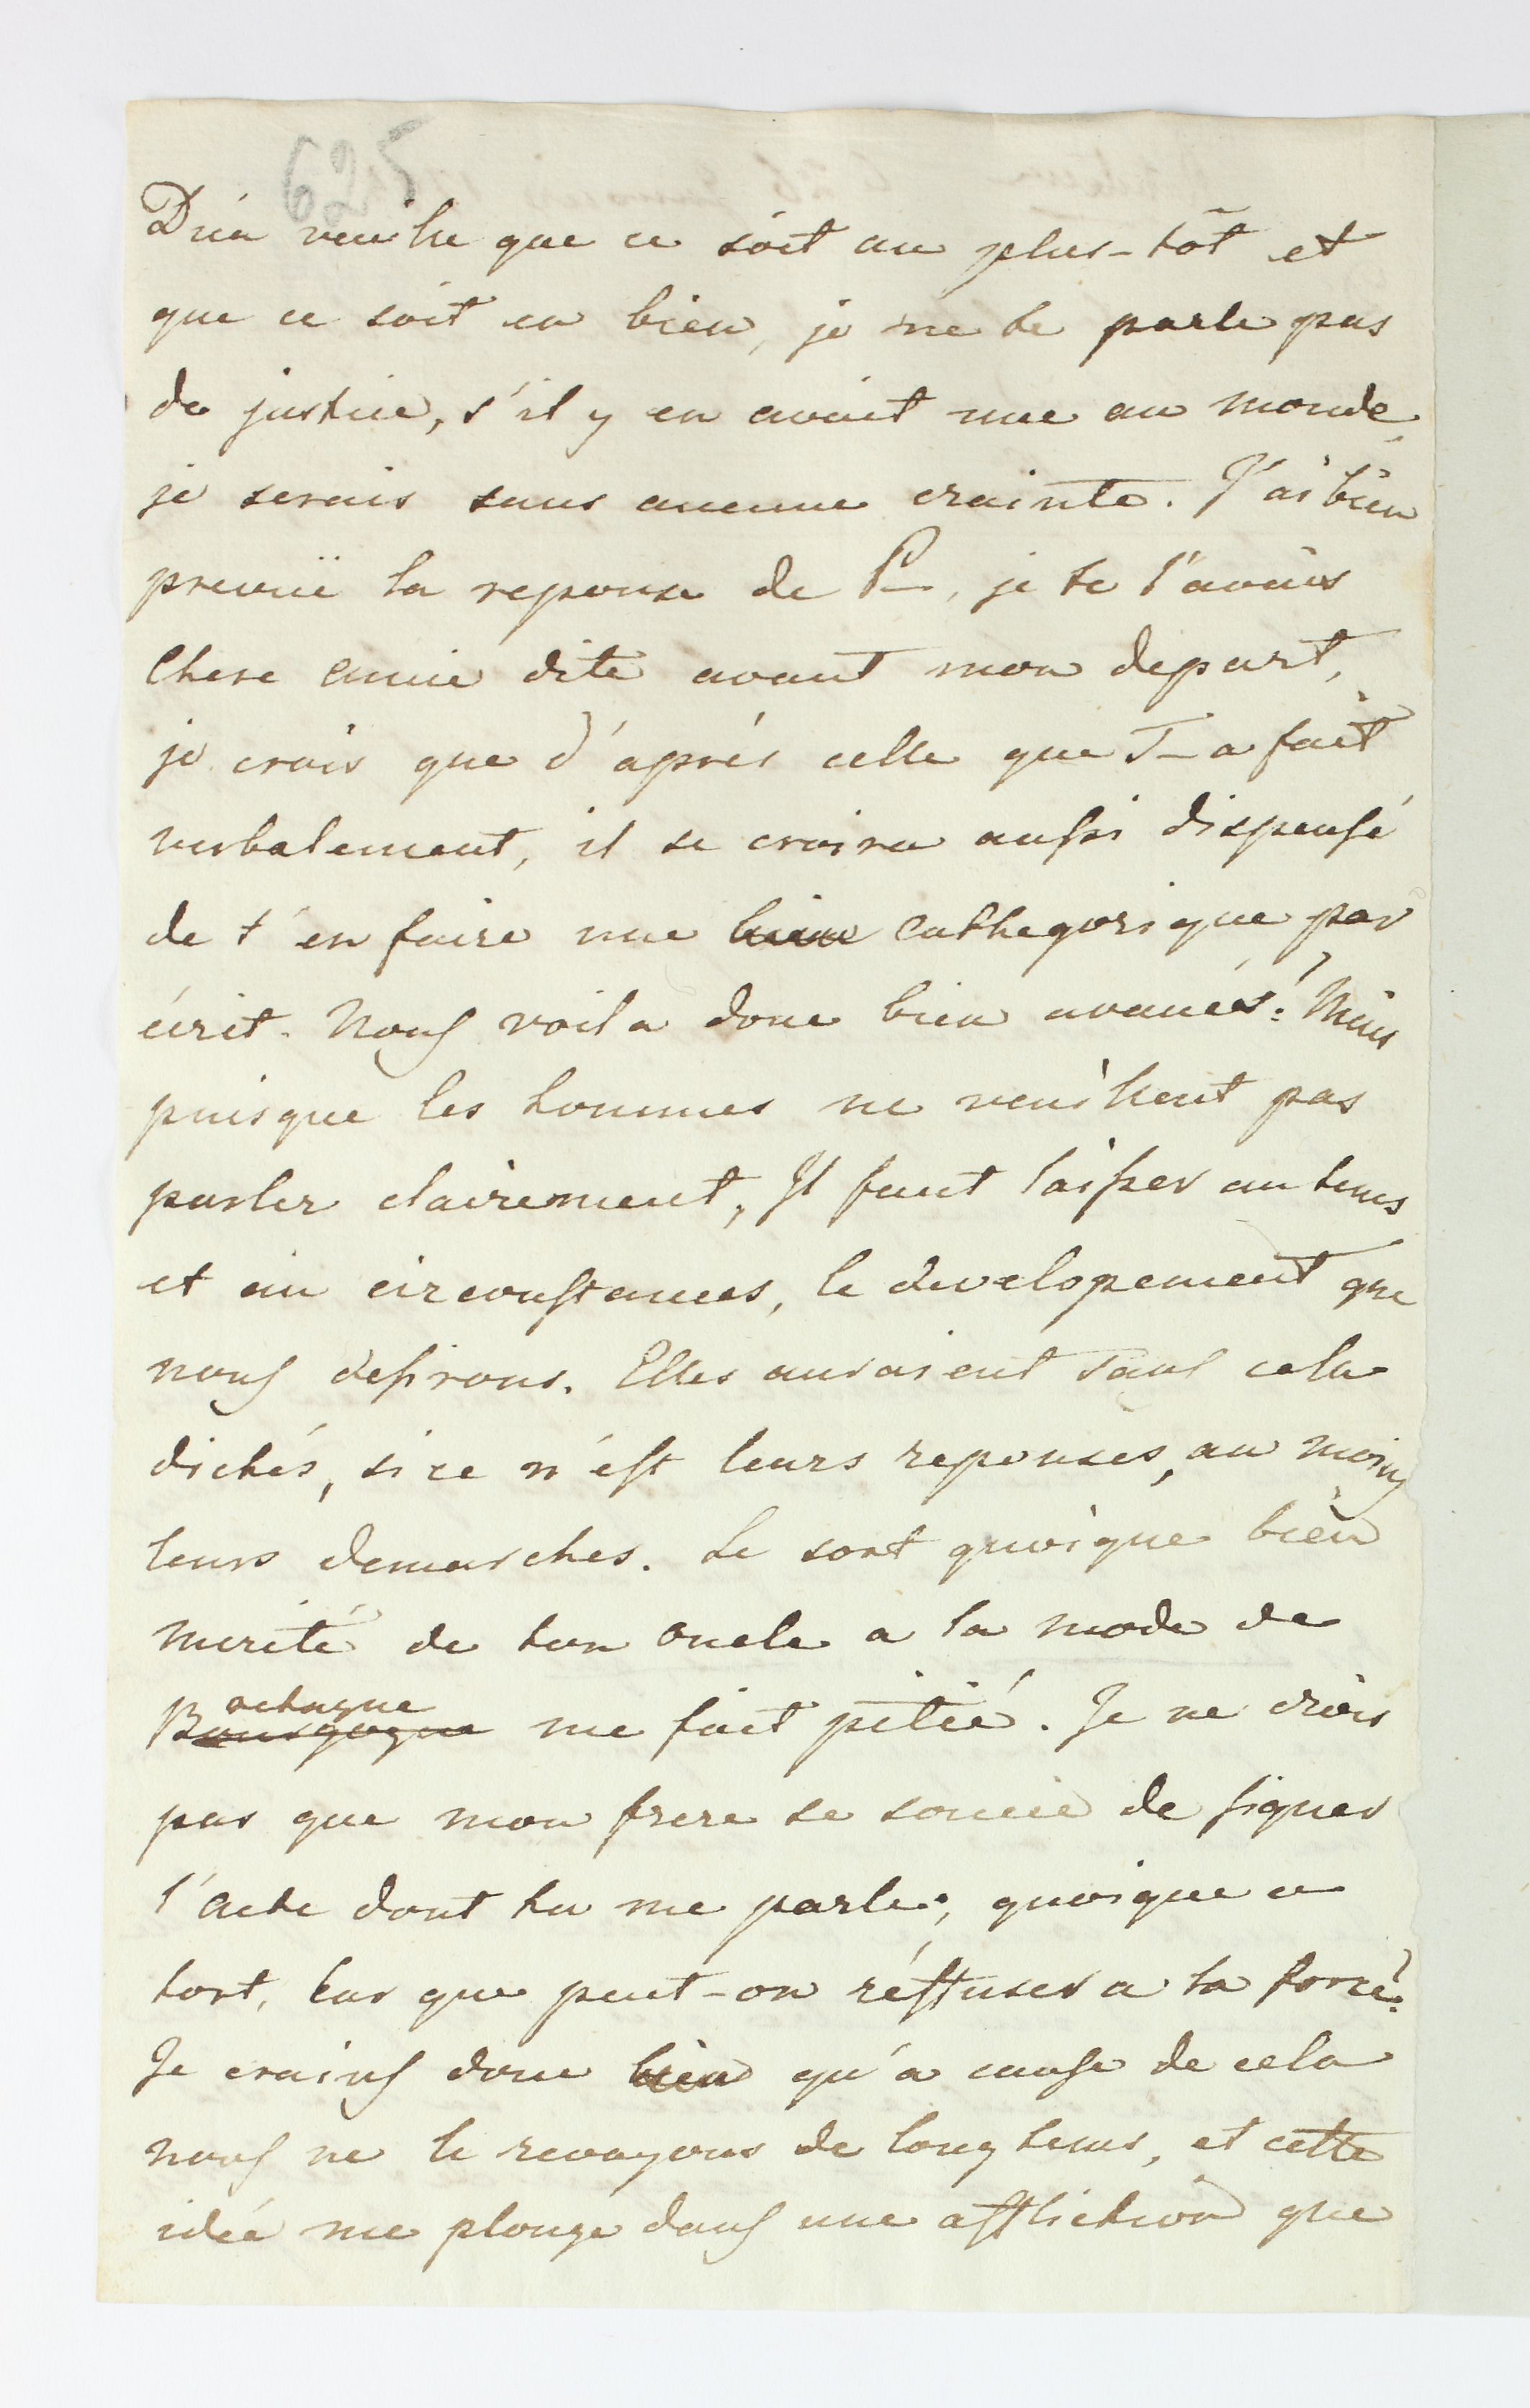 625
Dieu veuille que ce soit au plus-tôt et
que ce soit en bien, je ne te parle pas
de justice, s'il y en avait une au monde,
je serais sans aucune crainte. J'ai bien
prevuë la reponse de P—, je te l'avais
Chere amie dite avant mon depart,
je crois que d'après celle que T— a fait
verbalement, il se croira aussi dispensé
de t'en faire une bien cathegorique par
écrit. Nous voila donc bien avancés! Mais
puisque les hommes ne veuillent pas
parler clairement, Il faut laisser au tems
et au circonstances, le developement que
nous desirons. Elles auraient sans cela
dictés, si ce n'est leurs reponses, au moins
leurs demarches. Le sort quoique bien
merité de ton oncle a la mode de
Bourgogne retagne me fait pitié. Je ne crois
pas que mon frere se soucie de signer
l'acte dont tu me parle, quoique a
tort, car que peut-on réffuser a la force?
Je crains donc bien qu'a cause de cela
nous ne le revoyons de longtems, et cette
idée me plonge dans une affliction que